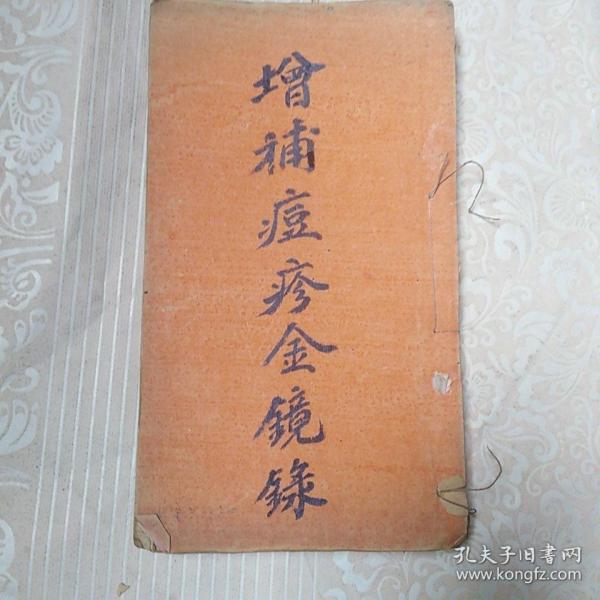 增補痘疹金鏡錄
孔夫子旧書网
www.kongfz.com